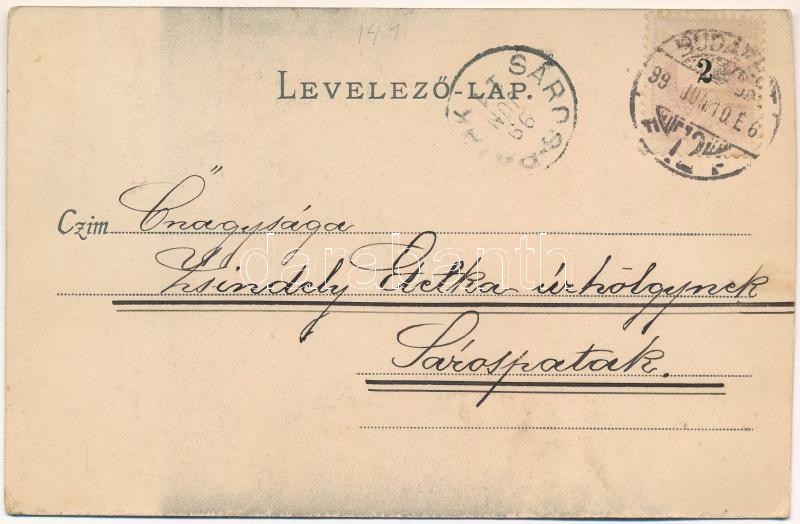 141
LEVELEZŐ-LAP.
SÁROSPATAK
99
2
BUDAPEST
99 JUN. 10. E 6
Czim Őnagysága
Zsindely Etelka úrhölgynek
Sárospatak.
darabanth